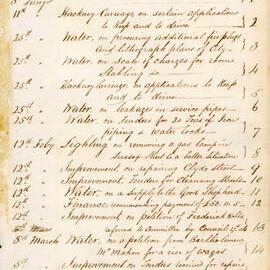 11th Hackney Carriage on certain application
to Keep and to drive 2
25th Water, on procuring additional fireplugs
and lithograph plans of City 3
25th Water, on Scale of charges for
Stabling &c 4
25th Hackney Carriage, on applications to Keep
and to drive 5
25th Water, on leakages in service pipes 6
25th Water, on Tenders for 20 Tons of Iron
piping & water Cocks 7
12th Feby Lighting on removing a gas lamp in
Sussex Street to a better situation 8
12th Improvement, on repairing Clyde Street 9
12th Improvement, Tenders for cleansing streets 10
12th Water, on a supply to the Good Shepherd 11
12th Finance recommending payment of £50 12
12th Improvement, on petition of Frederick
referred to Committee by Council 13
5th March Water, on a petition from Bartholomew
McMahon for a rise of wages 14
5th Improvement on Tenders received for repairs